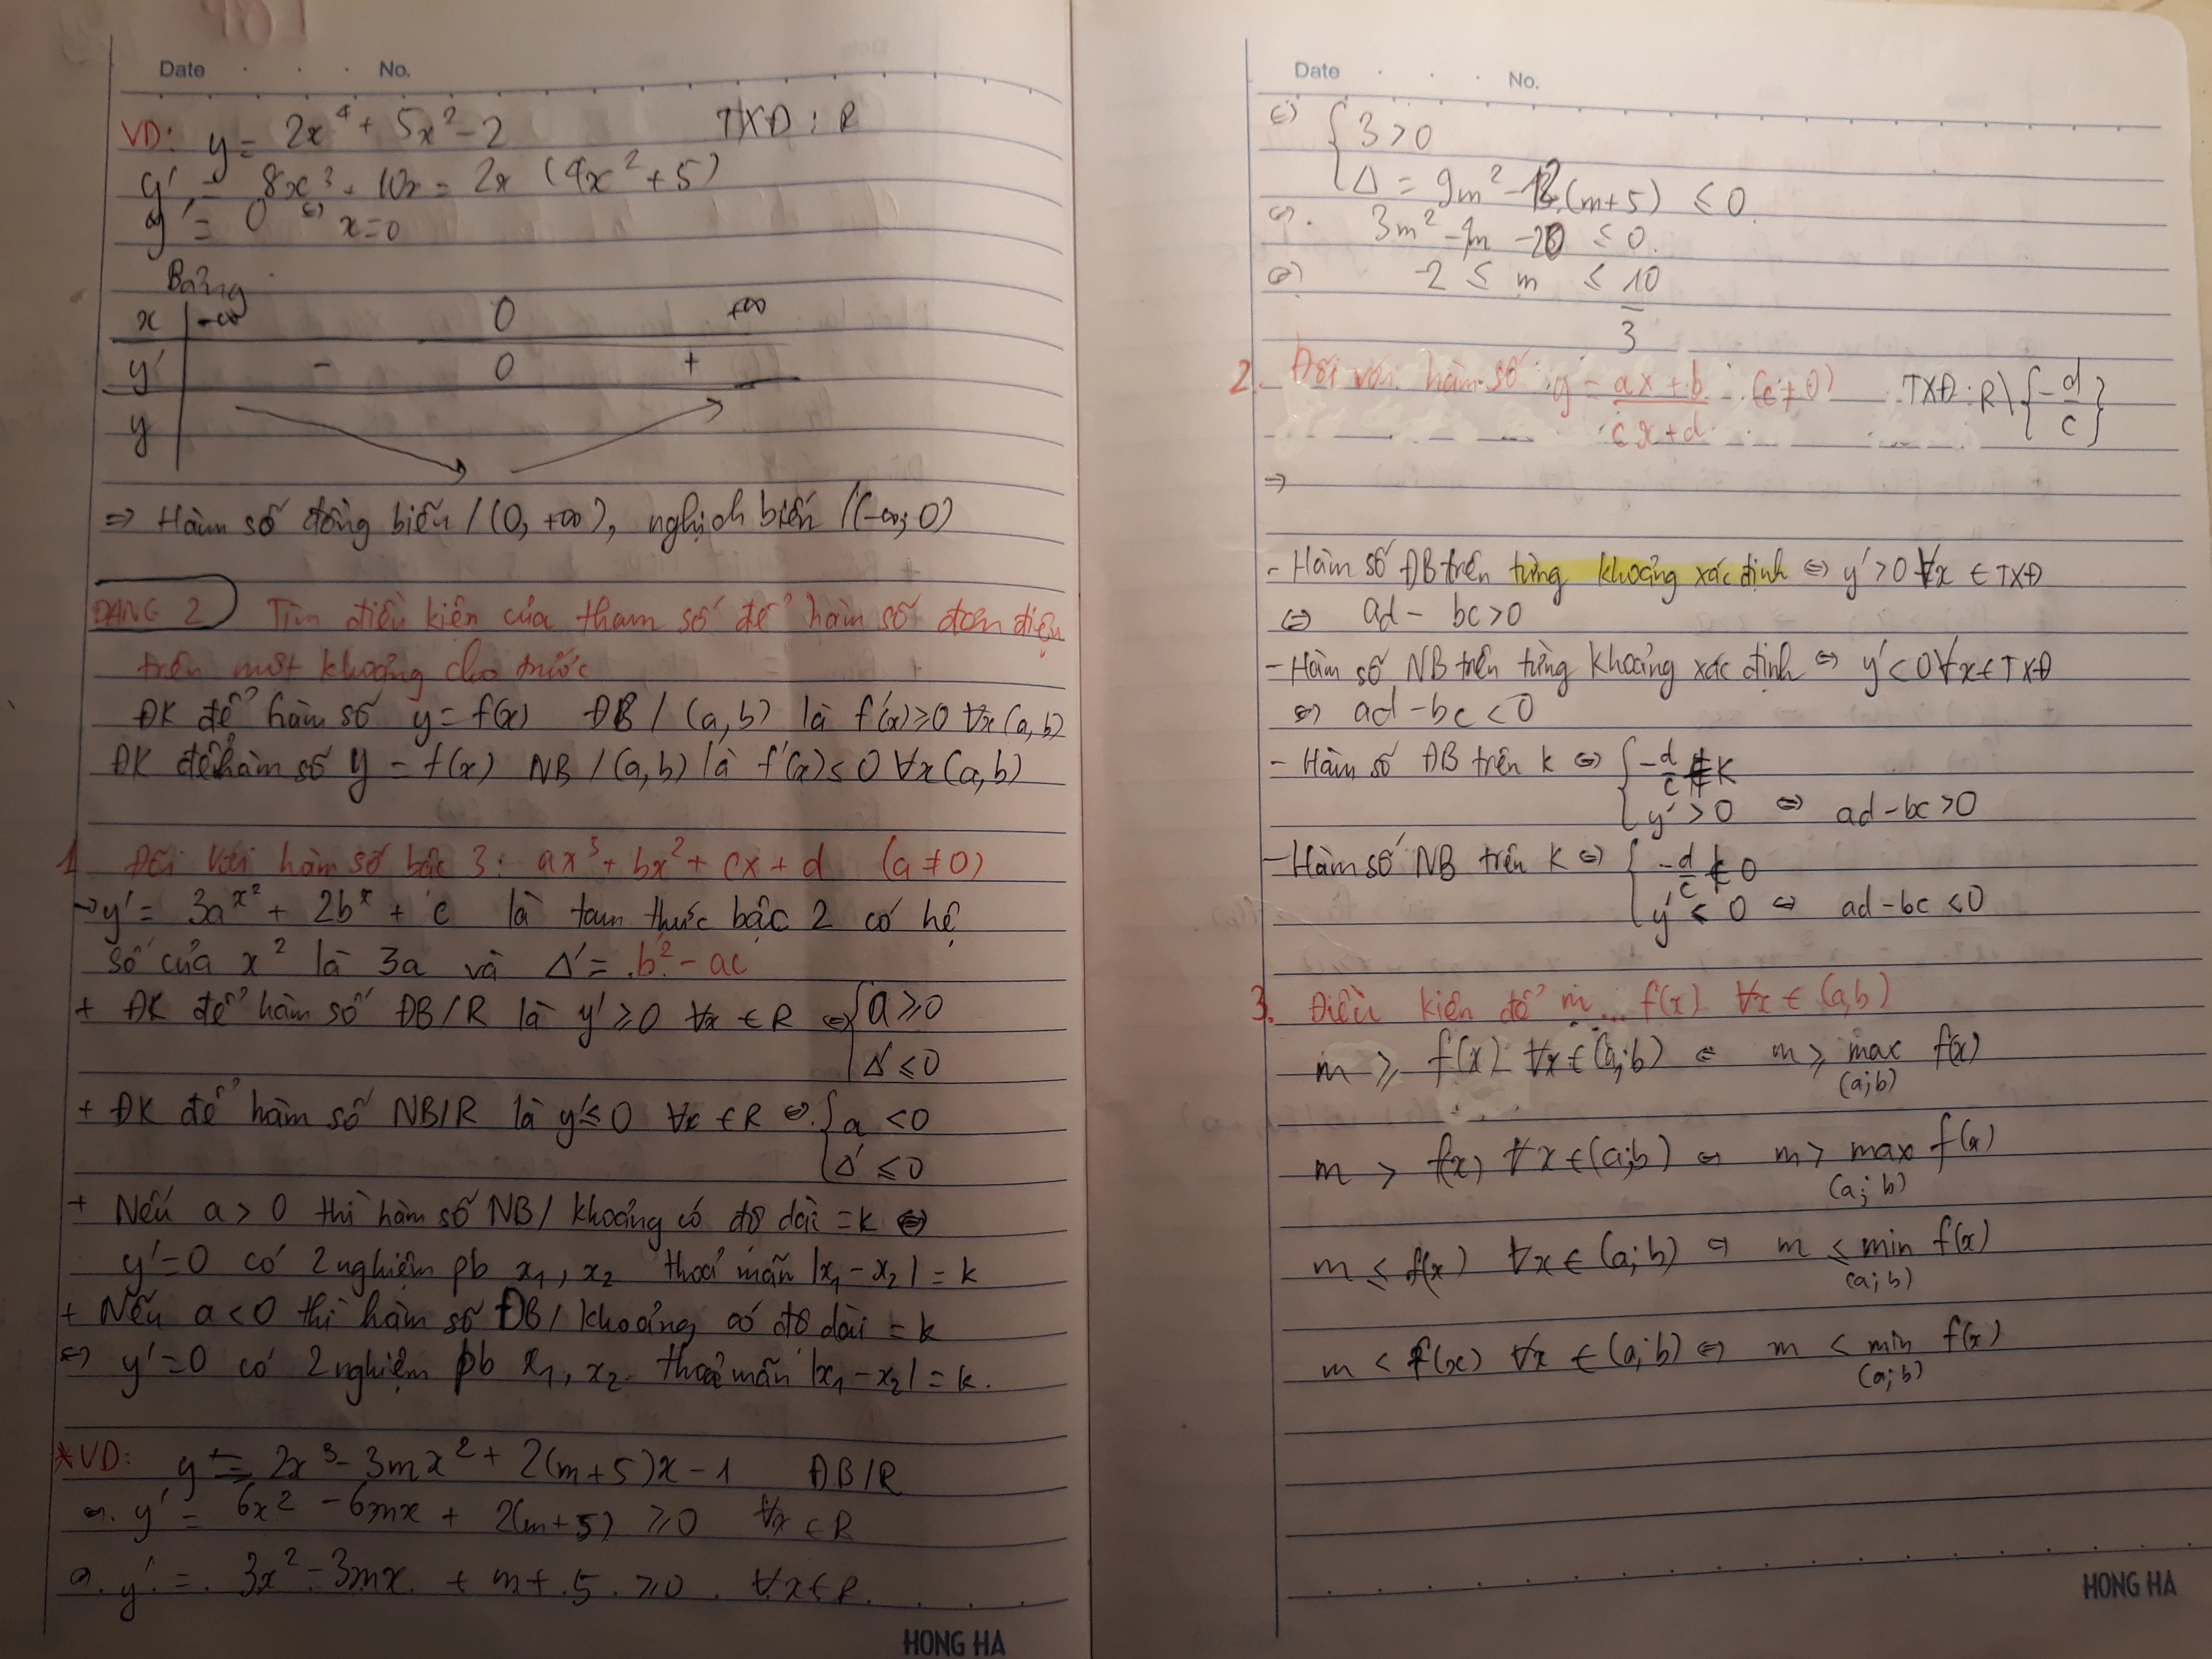 Date . . . No.
VD: y = 2x⁴ + 5x² - 2 TXĐ : R
y' = 8x³ + 10x = 2x (4x² + 5)
y' = 0 ⇔ x=0
Bảng
x -∞ 0 +∞
y' - 0 +
y
⇒ Hàm số đồng biến / (0, +∞), nghịch biến /(-∞; 0)
DẠNG 2 Tìm điều kiện của tham số để hàm số đơn điệu
trên một khoảng cho trước
ĐK để hàm số y = f(x) ĐB / (a,b) là f'(x) ≥ 0 ∀x (a,b)
ĐK để hàm số y = f(x) NB / (a,b) là f'(x) ≤ 0 ∀x (a,b)
1. Đối với hàm số bậc 3: ax³ + bx² + cx + d (a ≠ 0)
→ y' = 3ax² + 2bx + c là tam thức bậc 2 có hệ
số của x² là 3a và Δ' = b² - ac
+ ĐK để hàm số ĐB/R là y' ≥ 0 ∀x ∈ R ⇔ { a ≥ 0
Δ' ≤ 0
+ ĐK để hàm số NB/R là y' ≤ 0 ∀x ∈ R ⇔ { a < 0
Δ' ≤ 0
+ Nếu a > 0 thì hàm số NB / khoảng có độ dài = k ⇔
y' = 0 có 2 nghiệm pb x₁, x₂ thoả mãn |x₁ - x₂| = k
+ Nếu a < 0 thì hàm số ĐB / khoảng có độ dài = k
⇔ y' = 0 có 2 nghiệm pb x₁, x₂ thoả mãn |x₁ - x₂| = k.
*VD: y = 2x³ - 3mx² + 2(m+5)x - 1 ĐB/R
⇔ y' = 6x² - 6mx + 2(m+5) ≥ 0 ∀x ∈ R
⇔ y' = 3x² - 3mx + m + 5 ≥ 0 ∀x ∈ R
HONG HA
Date . . . No.
⇔ { 3 > 0
Δ = 9m² - 12(m+5) ≤ 0
⇔ 3m² - 4m - 20 ≤ 0.
⇔ -2 ≤ m ≤ 10/3
2. Đối với hàm số y = (ax + b)/(cx + d) (c ≠ 0) TXĐ : R \ {-d/c}
⇒
- Hàm số ĐB trên từng khoảng xác định ⇔ y' > 0 ∀x ∈ TXĐ
⇔ ad - bc > 0
- Hàm số NB trên từng khoảng xác định ⇔ y' < 0 ∀x ∈ TXĐ
⇔ ad - bc < 0
- Hàm số ĐB trên k ⇔ { -d/c ∉ K
y' > 0 ⇔ ad - bc > 0
- Hàm số NB trên k ⇔ { -d/c ∉ 0
y' ≤ 0 ⇔ ad - bc ≤ 0
3. Điều kiện để m ... f(x) ∀x ∈ (a,b)
m ≥ f(x) ∀x ∈ (a;b) ⇔ m ≥ max f(x)
(a;b)
m > f(x) ∀x ∈ (a;b) ⇔ m > max f(x)
(a;b)
m ≤ f(x) ∀x ∈ (a;b) ⇔ m ≤ min f(x)
(a;b)
m < f(x) ∀x ∈ (a;b) ⇔ m < min f(x)
(a;b)
HONG HA